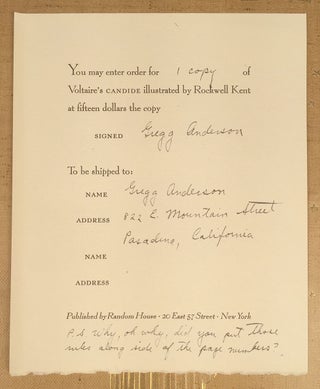 You may enter order for 1 copy of
Voltaire's CANDIDE illustrated by Rockwell Kent
at fifteen dollars the copy
SIGNED Gregg Anderson
To be shipped to:
NAME Gregg Anderson
ADDRESS 822 E. Mountain Street
Pasadena, California
NAME
ADDRESS
Published by Random House · 20 East 57 Street · New York
P.S. Why, oh why, did you put those
rules along side of the page numbers?